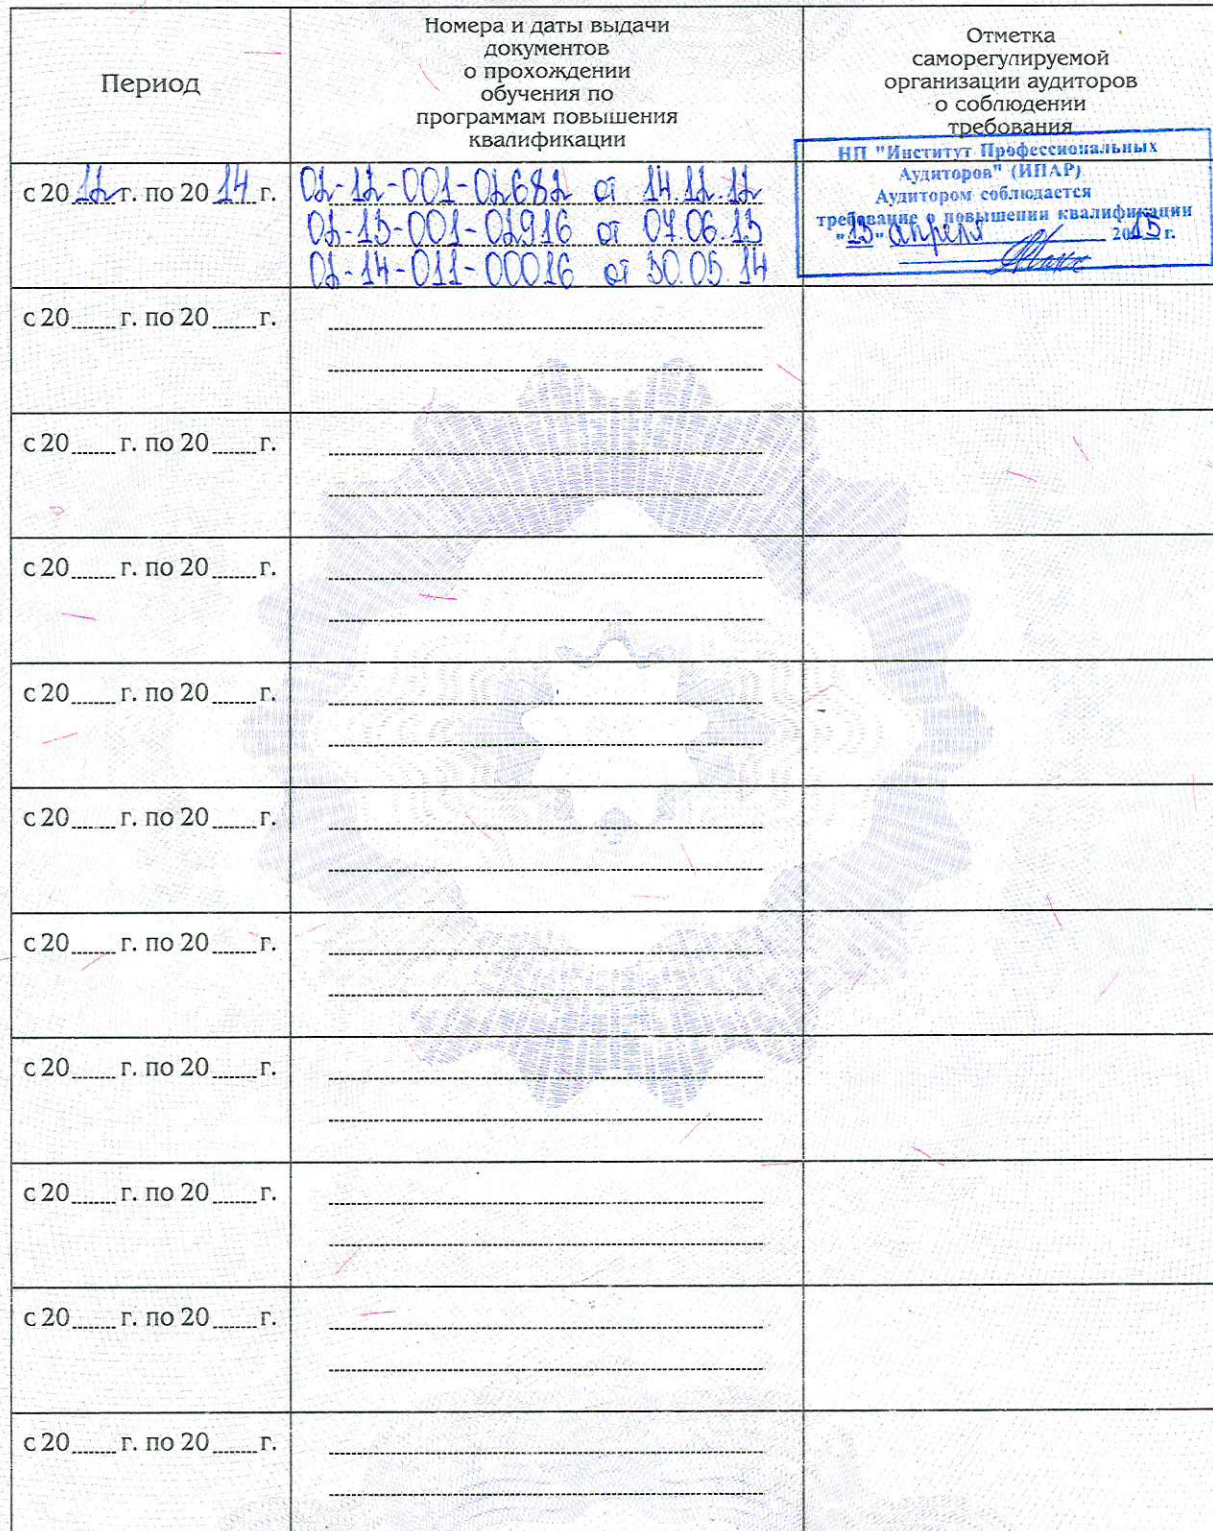 Период
Номера и даты выдачи
документов
о прохождении
обучения по
программам повышения
квалификации
Отметка
саморегулируемой
организации аудиторов
о соблюдении
требования
с 20 12 г. по 20 14 г.
02-12-001-02682 от 14.12.12
02-13-001-02916 от 07.06.13
02-14-011-00016 от 30.05.14
НП "Институт Профессиональных
Аудиторов" (ИПАР)
Аудитором соблюдается
требование о повышении квалификации
"13" апреля 2015 г.
с 20 г. по 20 г.
с 20 г. по 20 г.
с 20 г. по 20 г.
с 20 г. по 20 г.
с 20 г. по 20 г.
с 20 г. по 20 г.
с 20 г. по 20 г.
с 20 г. по 20 г.
с 20 г. по 20 г.
с 20 г. по 20 г.